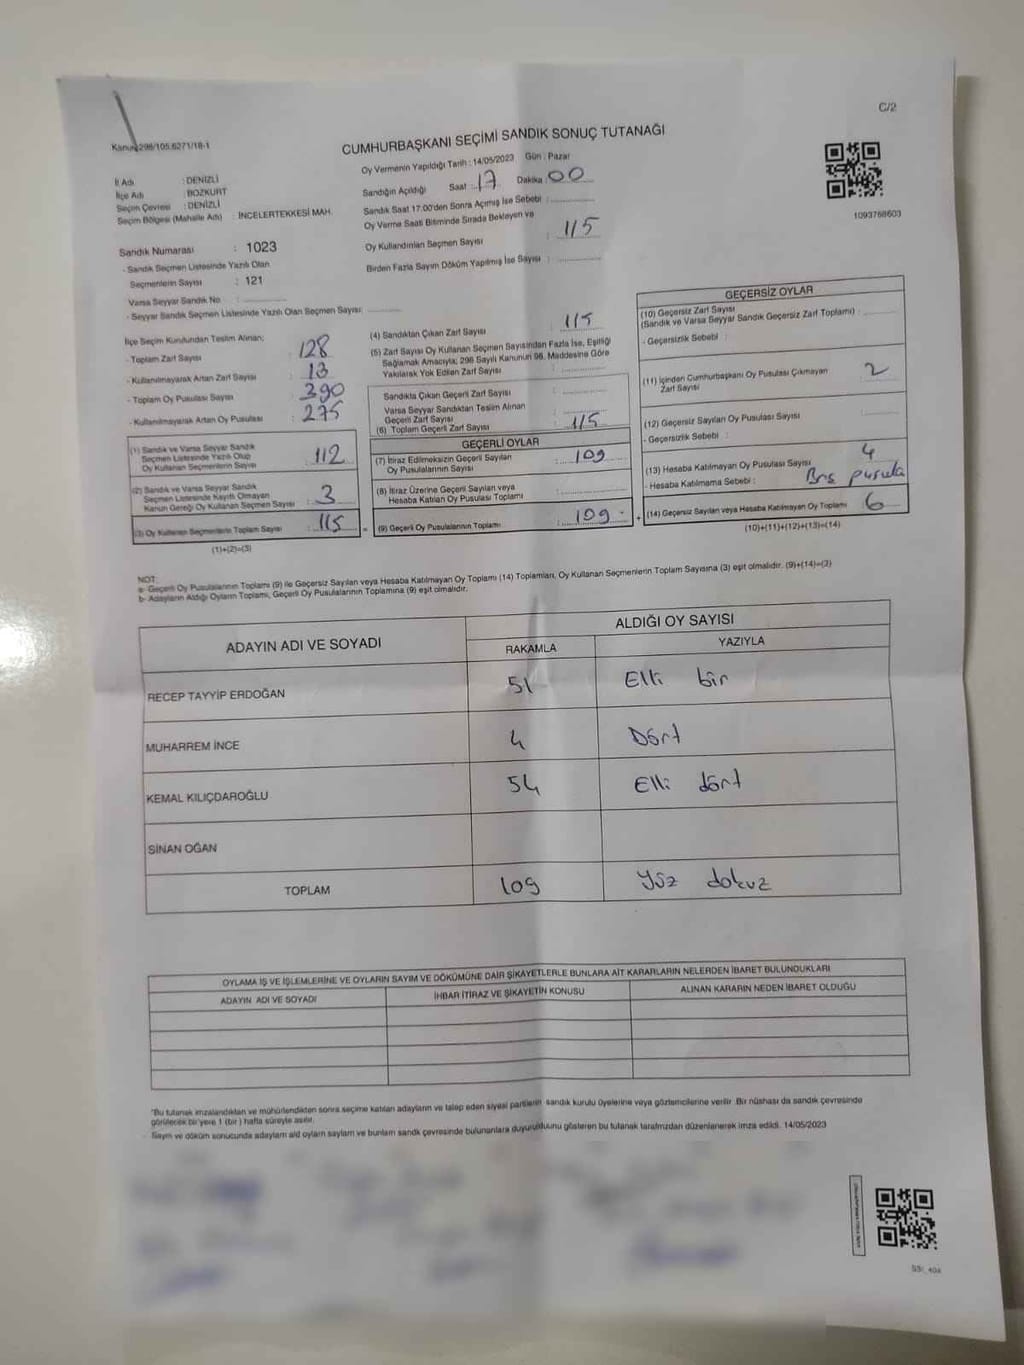 C/2
Kanun 298/105.6271/18-1
CUMHURBAŞKANI SEÇİMİ SANDIK SONUÇ TUTANAĞI
Oy Vermenin Yapıldığı Tarih : 14/05/2023 Gün : Pazar
İl Adı : DENİZLİ
İlçe Adı : BOZKURT
Seçim Çevresi : DENİZLİ
Seçim Bölgesi (Mahalle Adı) : İNCELERTEKKESİ MAH.
Sandığın Açıldığı Saat : 17 Dakika 00
Sandık Saat 17.00'den Sonra Açılmış İse Sebebi :
Oy Verme Saati Bitiminde Sırada Bekleyen ve
Oy Kullandırılan Seçmen Sayısı : 115
Birden Fazla Sayım Döküm Yapılmış İse Sayısı :
1093768603
Sandık Numarası : 1023
- Sandık Seçmen Listesinde Yazılı Olan
Seçmenlerin Sayısı : 121
Varsa Seyyar Sandık No :
- Seyyar Sandık Seçmen Listesinde Yazılı Olan Seçmen Sayısı:
İlçe Seçim Kurulundan Teslim Alınan;
- Toplam Zarf Sayısı : 128
- Kullanılmayarak Artan Zarf Sayısı : 13
- Toplam Oy Pusulası Sayısı : 390
- Kullanılmayarak Artan Oy Pusulası : 275
(1) Sandık ve Varsa Seyyar Sandık
Seçmen Listesinde Yazılı Olup
Oy Kullanan Seçmenlerin Sayısı : 112
(2) Sandık ve Varsa Seyyar Sandık
Seçmen Listesinde Kayıtlı Olmayan
Kanun Gereği Oy Kullanan Seçmen Sayısı : 3
(3) Oy Kullanan Seçmenlerin Toplam Sayısı : 115 =
(1)+(2)=(3)
(4) Sandıktan Çıkan Zarf Sayısı : 115
(5) Zarf Sayısı Oy Kullanan Seçmen Sayısından Fazla İse, Eşitliği
Sağlamak Amacıyla; 298 Sayılı Kanunun 98. Maddesine Göre
Yakılarak Yok Edilen Zarf Sayısı :
Sandıkta Çıkan Geçerli Zarf Sayısı :
Varsa Seyyar Sandıktan Teslim Alınan
Geçerli Zarf Sayısı :
(6) Toplam Geçerli Zarf Sayısı : 115
GEÇERLİ OYLAR
(7) İtiraz Edilmeksizin Geçerli Sayılan
Oy Pusulalarının Sayısı : 109
(8) İtiraz Üzerine Geçerli Sayılan veya
Hesaba Katılan Oy Pusulası Toplamı :
(9) Geçerli Oy Pusulalarının Toplamı : 109 +
GEÇERSİZ OYLAR
(10) Geçersiz Zarf Sayısı
(Sandık ve Varsa Seyyar Sandık Geçersiz Zarf Toplamı) :
- Geçersizlik Sebebi :
(11) İçinden Cumhurbaşkanı Oy Pusulası Çıkmayan
Zarf Sayısı : 2
(12) Geçersiz Sayılan Oy Pusulası Sayısı :
- Geçersizlik Sebebi :
(13) Hesaba Katılmayan Oy Pusulası Sayısı : 4
- Hesaba Katılmama Sebebi : Boş pusula
(14) Geçersiz Sayılan veya Hesaba Katılmayan Oy Toplamı : 6
(10)+(11)+(12)+(13)=(14)
NOT:
a- Geçerli Oy Pusulalarının Toplamı (9) ile Geçersiz Sayılan veya Hesaba Katılmayan Oy Toplamı (14) Toplamları, Oy Kullanan Seçmenlerin Toplam Sayısına (3) eşit olmalıdır. (9)+(14)=(3)
b- Adayların Aldığı Oyların Toplamı, Geçerli Oy Pusulalarının Toplamına (9) eşit olmalıdır.
ADAYIN ADI VE SOYADI
ALDIĞI OY SAYISI
RAKAMLA YAZIYLA
RECEP TAYYİP ERDOĞAN 51 Elli bir
MUHARREM İNCE 4 Dört
KEMAL KILIÇDAROĞLU 54 Elli dört
SİNAN OĞAN
TOPLAM 109 Yüz dokuz
OYLAMA İŞ VE İŞLEMLERİNE VE OYLARIN SAYIM VE DÖKÜMÜNE DAİR ŞİKAYETLERLE BUNLARA AİT KARARLARIN NELERDEN İBARET BULUNDUKLARI
ADAYIN ADI VE SOYADI İHBAR İTİRAZ VE ŞİKAYETİN KONUSU ALINAN KARARIN NEDEN İBARET OLDUĞU
*Bu tutanak imzalandıktan ve mühürlendikten sonra seçime katılan adayların ve talep eden siyasi partilerin sandık kurulu üyelerine veya gözlemcilerine verilir. Bir nüshası da sandık çevresinde
görülecek bir yere 1 (bir) hafta süreyle asılır.
Sayım ve döküm sonucunda adayların aldığı oyların sayıları ve bunların sandık çevresinde bulunanlara duyurulduğunu gösteren bu tutanak tarafımızdan düzenlenerek imza edildi. 14/05/2023